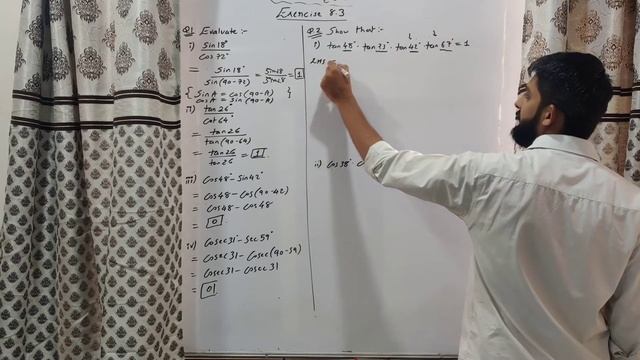 Exercise 8.3
Q.1 Evaluate :-
i) sin18°
Cos72°
= Sin18° = Sin18 = 1
Sin(90-72) Sin18
{ SinA = Cos(90-A) }
CosA = Sin(90-A)
ii) tan26°
Cot64°
= tan26
tan(90-64)
= tan26 = 1.
tan26
iii) Cos48-Sin42°
= Cos48-Cos(90-42)
= Cos48-Cos48
= 0
iv) Cosec31°-Sec59°
= Cosec31-Cosec(90-59)
= Cosec31-Cosec31
= 0
Q.2 Show that :-
i) tan48°. tan23°. tan42°. tan67° = 1
LHS =
ii) Cos38°.